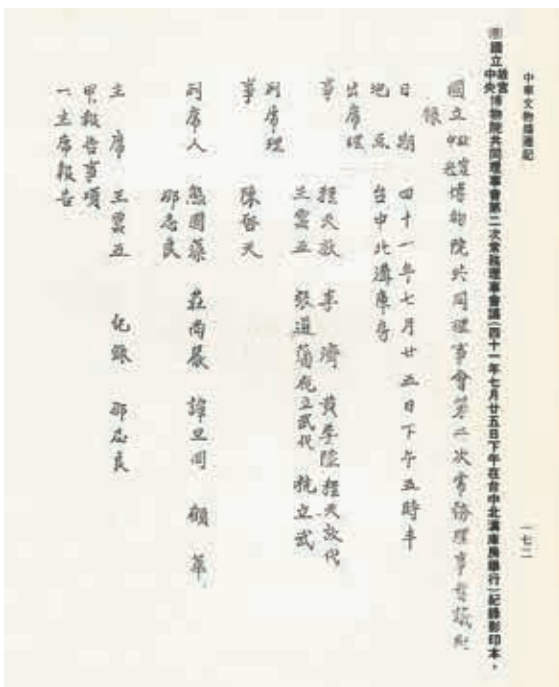 中華文物播遷記
一七二
國立故宮中央博物院共同理事會第二次常務理事會議(四十一年七月廿五日下午在台中北溝庫房舉行)紀錄影印本。
國立故宮中央博物院共同理事會第二次常務理事會議紀
錄
日 期 四十一年七月廿五日下午五時半
地 點 台中北溝庫房
出席理
事 程天放 李 濟 黃季陸程天放代
王雲五 張道藩杭立武代 杭立武
列席理
事 陳啓天
列席人 熊國藻 莊尚嚴 譚旦冏 顧 華
邵志良
主 席 王雲五 紀錄 邵志良
甲報告事項
一主席報告